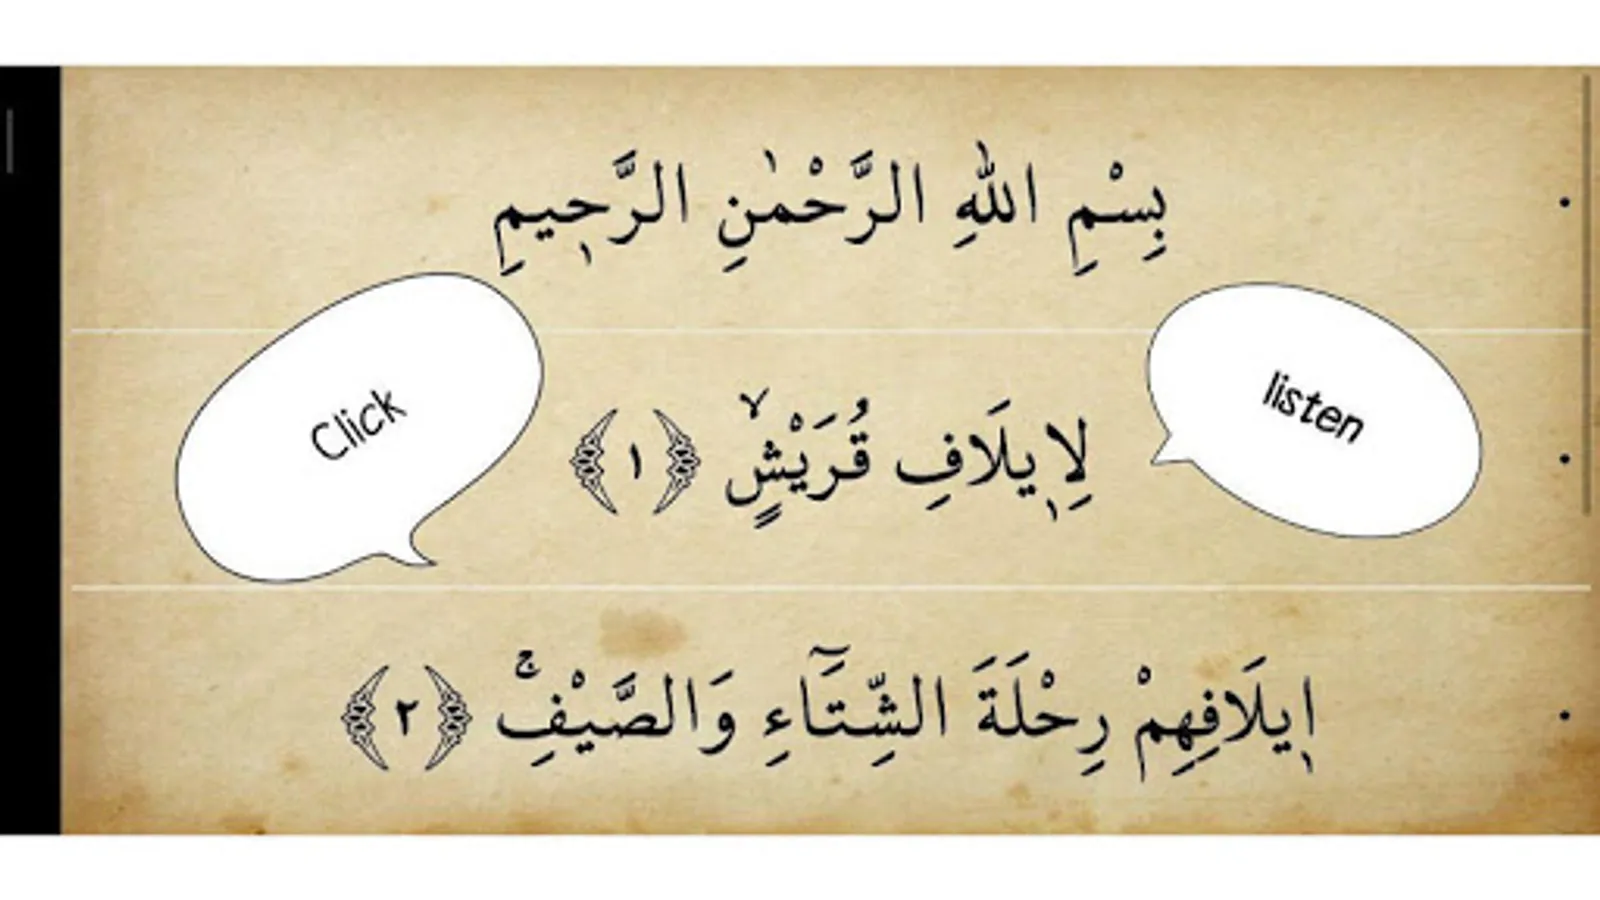 بِسْمِ اللهِ الرَّحْمٰنِ الرَّحِيمِ
Click
listen
لِاِيلَافِ قُرَيْشٍۙ ﴿١﴾
اِيلَافِهِمْ رِحْلَةَ الشِّتَٓاءِ وَالصَّيْفِۚ ﴿٢﴾